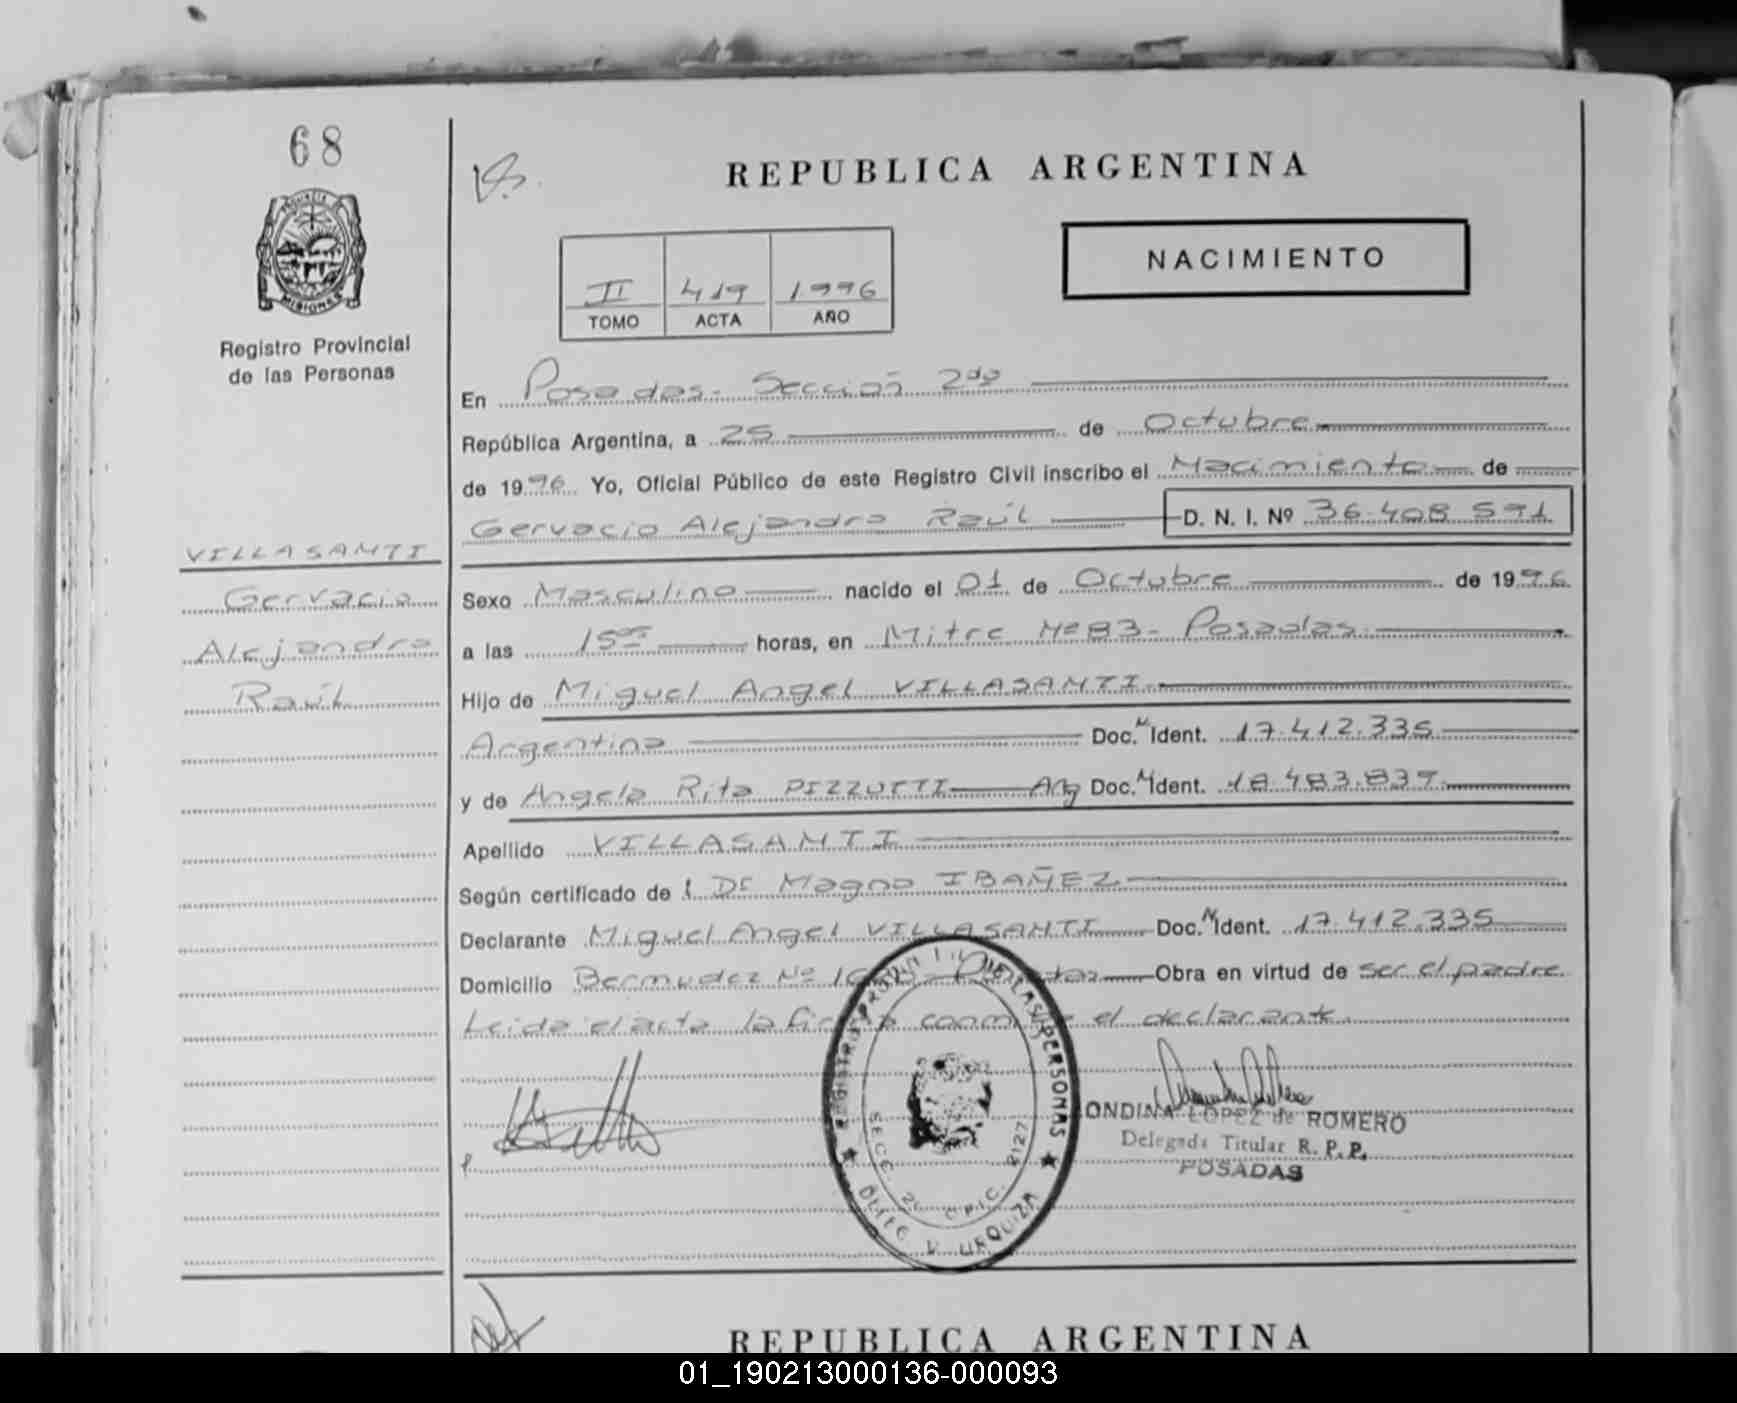 68
PROVINCIA DE
MISIONES
Registro Provincial
de las Personas
REPUBLICA ARGENTINA
NACIMIENTO
II 419 1.996
TOMO ACTA AÑO
En Posadas - Sección 2da
República Argentina, a 25 de Octubre
de 1996 Yo, Oficial Público de este Registro Civil inscribo el Nacimiento de
Gervacio Alejandro Raúl D. N. I. Nº 36.408.591
VILLASANTI
Gervacio
Alejandro
Raúl
Sexo Masculino nacido el 01 de Octubre de 1996
a las 15 horas, en Mitre Nº 83 - Posadas
Hijo de Miguel Angel VILLASANTI
Argentino Doc. N Ident. 17.412.335
y de Angela Rita PIZZUTTI Arg Doc. N Ident. 18.483.839
Apellido VILLASANTI
Según certificado de l Dr Magno IBAÑEZ
Declarante Miguel Angel VILLASANTI Doc. N Ident. 17.412.335
Domicilio Bermudez Nº Obra en virtud de ser el padre
Leida el acta la firma conmigo el declarante
REGISTRO PROVINCIAL DE LAS PERSONAS
SECC. 2ª C.P.I.C. 2127
DLTE V. URQUIZA
ONDINA LOPEZ de ROMERO
Delegada Titular R. P. P.
POSADAS
REPUBLICA ARGENTINA
01_190213000136-000093